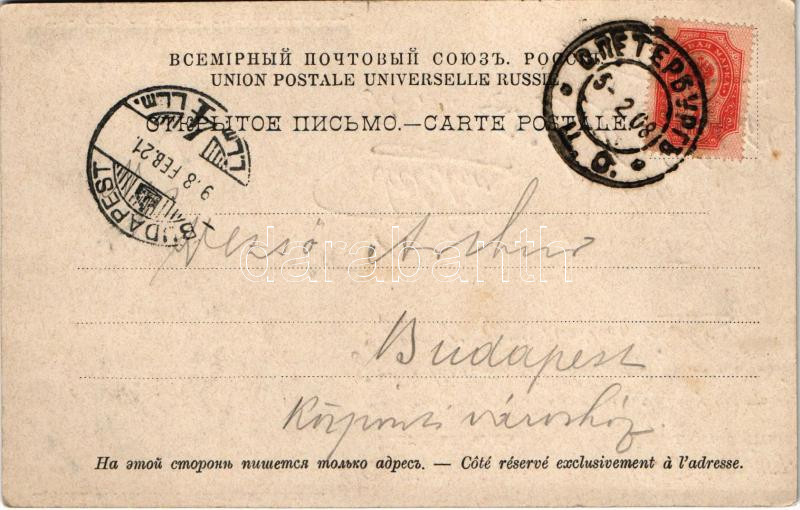 ВСЕМІРНЫЙ ПОЧТОВЫЙ СОЮЗЪ. РОССІЯ
UNION POSTALE UNIVERSELLE RUSSIE
ОТКРЫТОЕ ПИСЬМО.—CARTE POSTALE
С.ПЕТЕРБУРГЪ
5-2.08
BUDAPEST
9.8 FEB.21.
darabanth
Dezső Arthur
Budapest
Központi városház
На этой сторонѣ пишется только адресъ. — Côté réservé exclusivement à l'adresse.